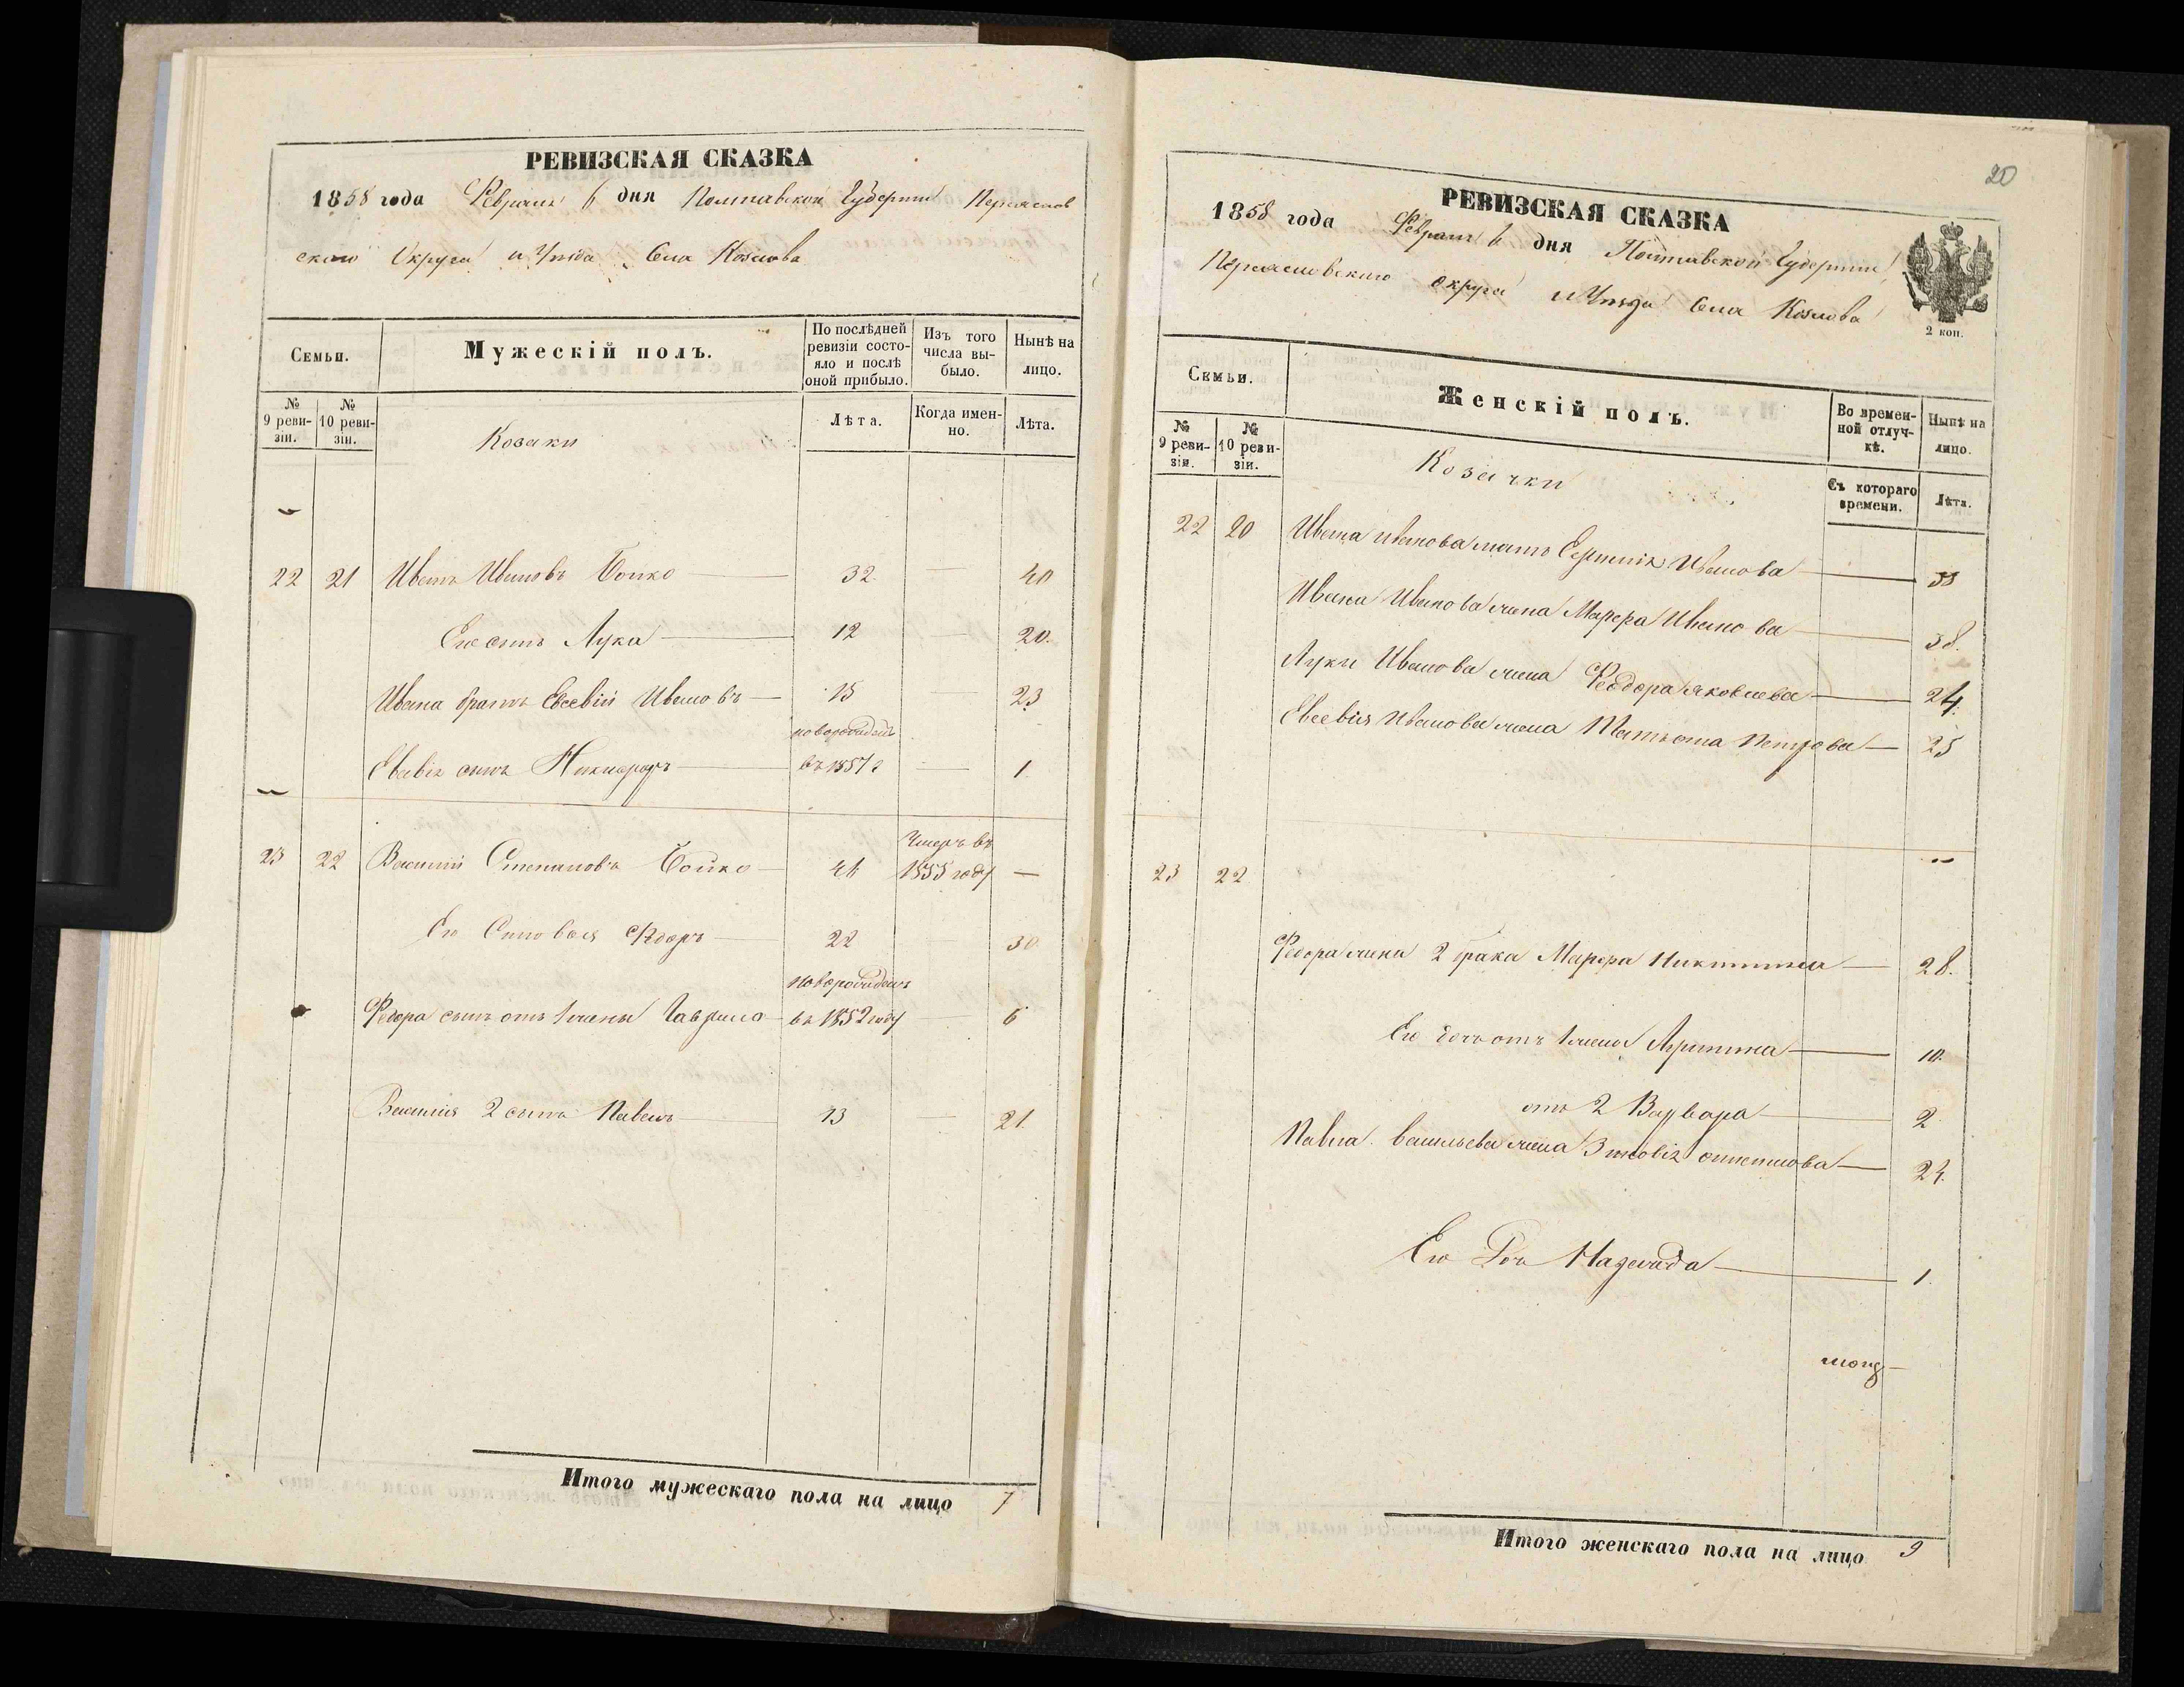 РЕВИЗСКАЯ СКАЗКА
1858 года Февраля 6 дня Полтавской Губернии Переяслов
ского Округа и Уѣзда Села Козлова
Семьи.
Мужескій полъ.
По послѣдней ревизіи состояло и послѣ оной прибыло.
Изъ того числа выбыло.
Нынѣ на лицо.
№ 9 ревизіи.
№ 10 ревизіи.
Козаки
Лѣта.
Когда именно.
Лѣта.
22 21 Иванъ Ивановъ Бойко — 32. — 40
Его сынъ Лука — 12 — 20.
Ивана братъ Евсевій Ивановъ — 15 — 23
новорожденъ
Евсевія сынъ Никифоръ — въ 1857 г — 1
Умеръ въ
23 22 Василій Степановъ Бойко — 46 1855 году —
Его Сыновья Федоръ — 22 — 30
новорожденъ
Федора сынъ отъ 1 жены Гаврило — въ 1852 году — 6
Василія 2 сынъ Павелъ — 13 — 21.
Итого мужескаго пола на лицо 7
20
РЕВИЗСКАЯ СКАЗКА
1858 года Февраля 6 дня Полтавской Губерніи
Переясловскаго округа и Уѣзда Села Козлова
2 коп.
Семьи.
Женскій полъ.
Во временной отлучкѣ.
Нынѣ на лицо.
№ 9 ревизіи.
№ 10 ревизіи.
Козачки
Съ котораго времени.
Лѣта.
22 20 Ивана Иванова мать Иванова —
Ивана Иванова жена Марфа Иванова — 38.
Луки Иванова жена Феодора Яковлева — 24.
Евсевія Иванова жена Татьяна Петрова — 25
23 22
Федора жена 2 брака Марфа Никитина — 28.
Его дочь отъ 1 жены — 10.
отъ 2 Варвара — 2
Павла Васильева жена — 24.
Его Дочь Надежда — 1.
Итого женскаго пола на лицо 9